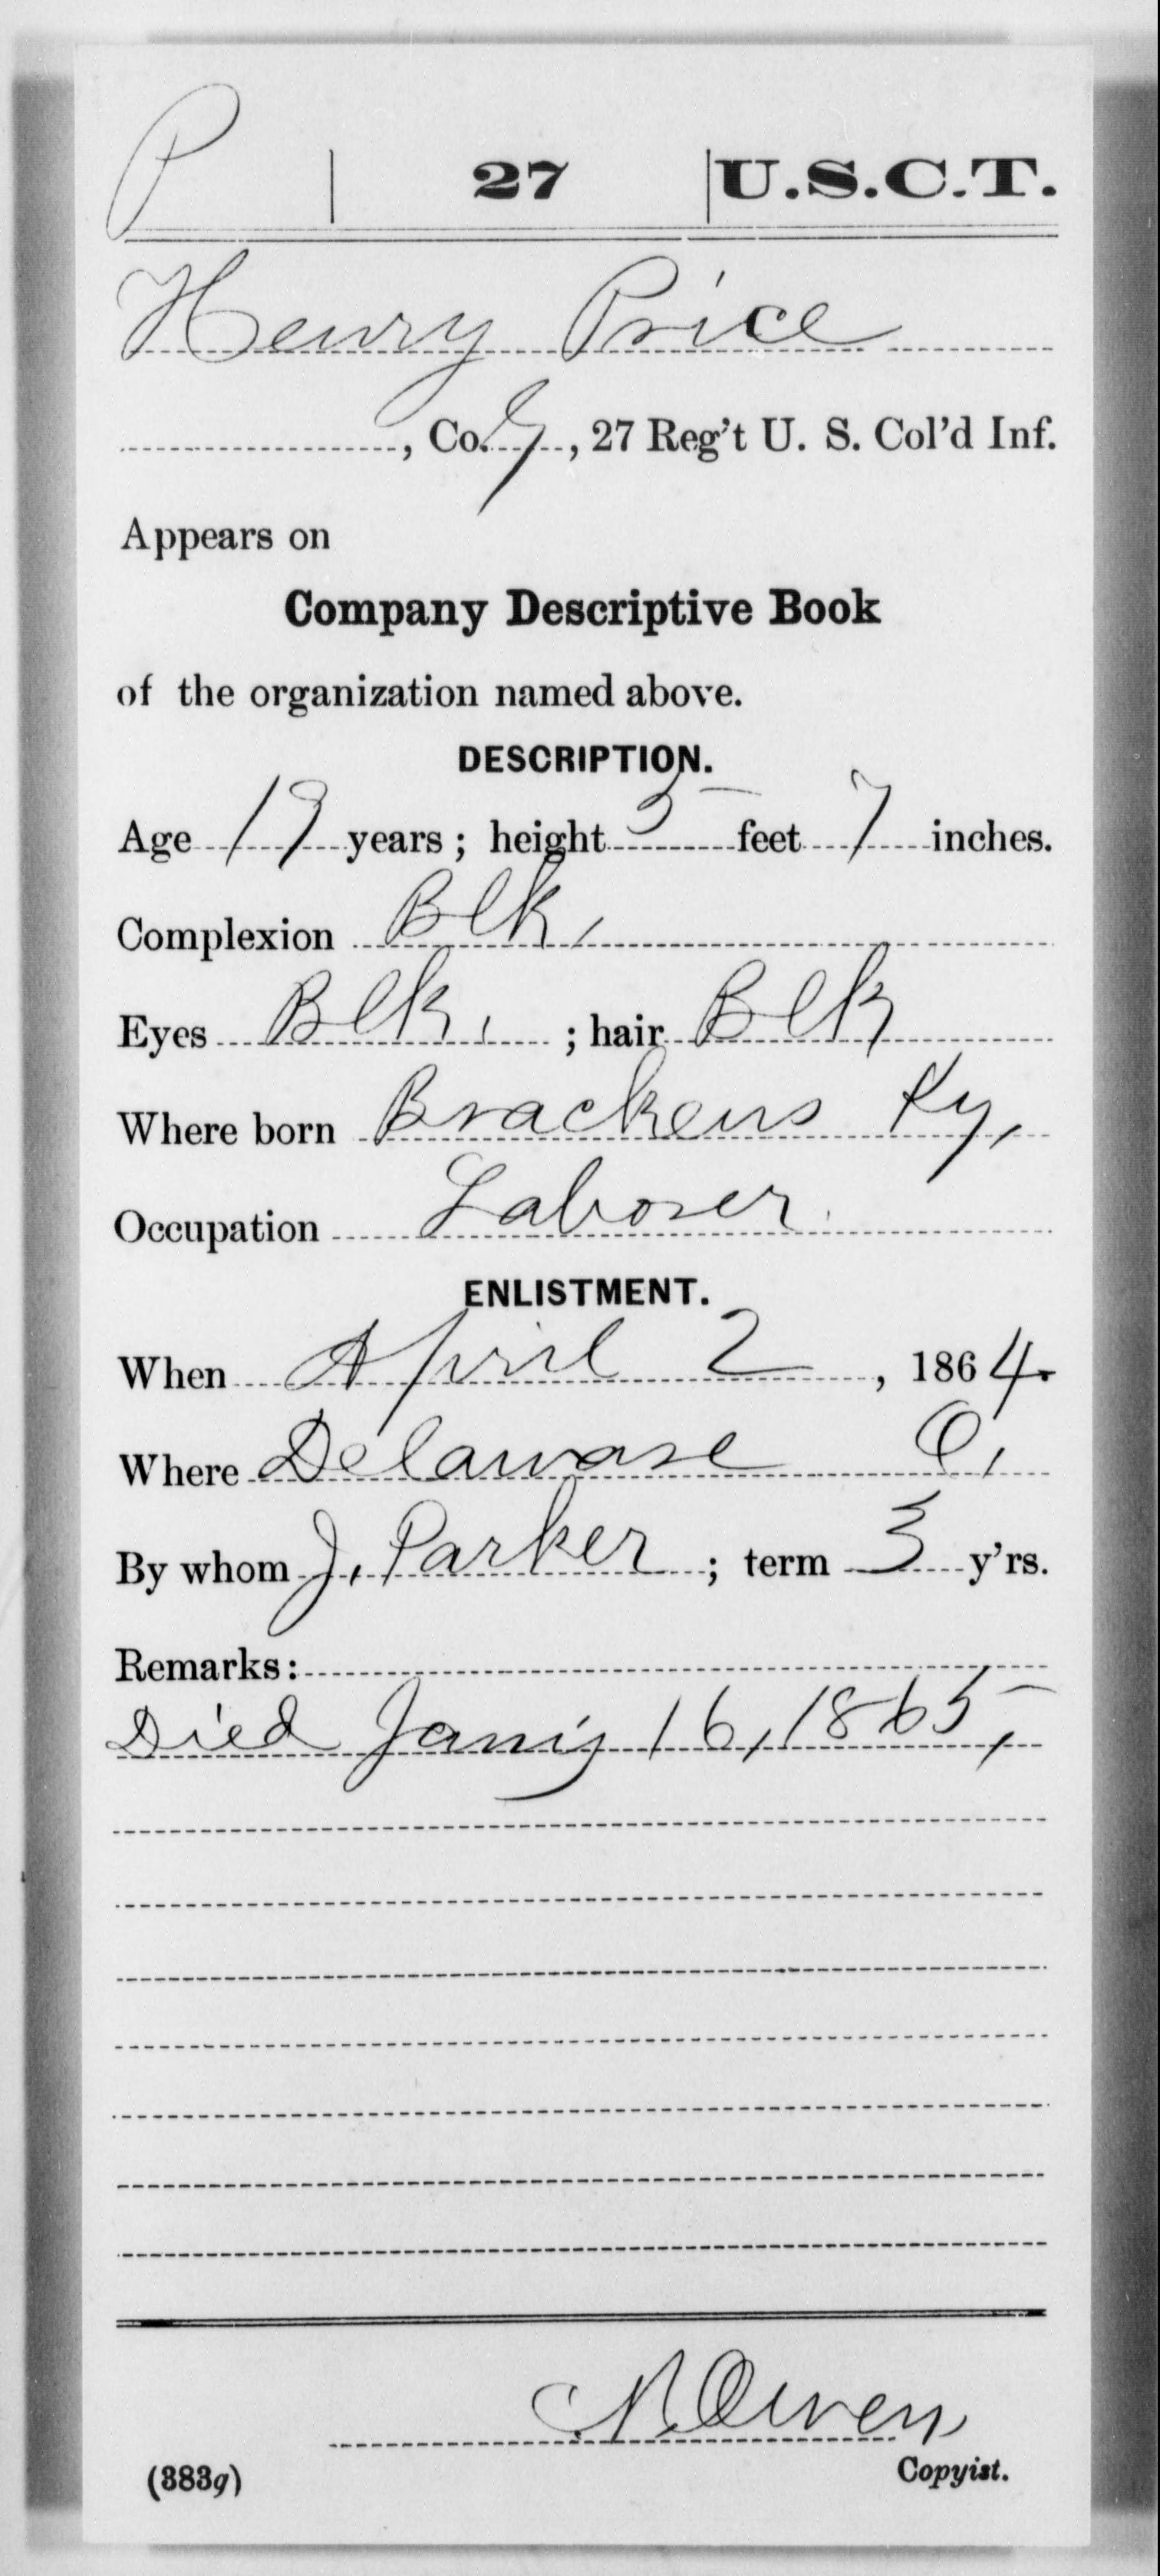 P | 27 | U.S.C.T.
Henry Price
, Co. G, 27 Reg't U. S. Col'd Inf.
Appears on
Company Descriptive Book
of the organization named above.
DESCRIPTION.
Age 19 years; height 5 feet 7 inches.
Complexion Blk.
Eyes Blk. ; hair Blk
Where born Brackens Ky,
Occupation Laborer.
ENLISTMENT.
When April 2, 1864.
Where Delaware O,
By whom J. Parker; term 3 y'rs.
Remarks:
Died Jan'y 16, 1865,
N. Owen
(383g) Copyist.